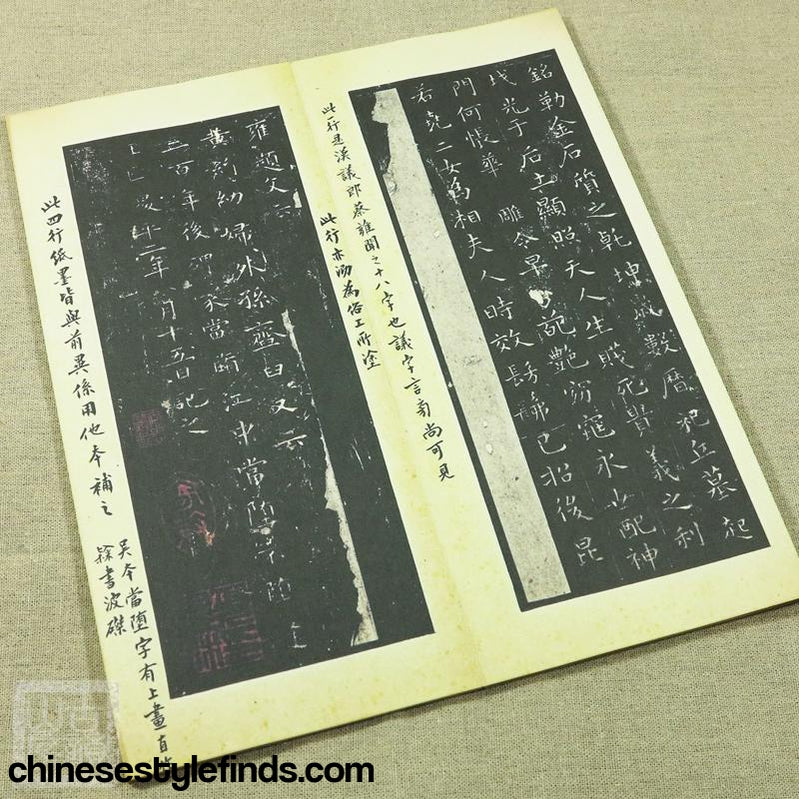 銘勒金石質之乾坤歲數曆祀丘墓起
坟光于后土顯照天人生賤死貴義之利
門何悵華雕令早葩艷窈窕永世配神
若堯二女為相夫人時效髣髴已招後昆
此一行是漢議郎蔡雍聞之十八字也議字言旁尚可見
此行亦泐為俗工所塗
雍題文云
黃絹幼婦外孫齏臼又云
三百年後碑冢當墮江中當墮不
二年八月十五日記之
此四行紙墨皆與前異係用他本補之
吳本當墮字有上畫直
書波磔
chinesestylefinds.com